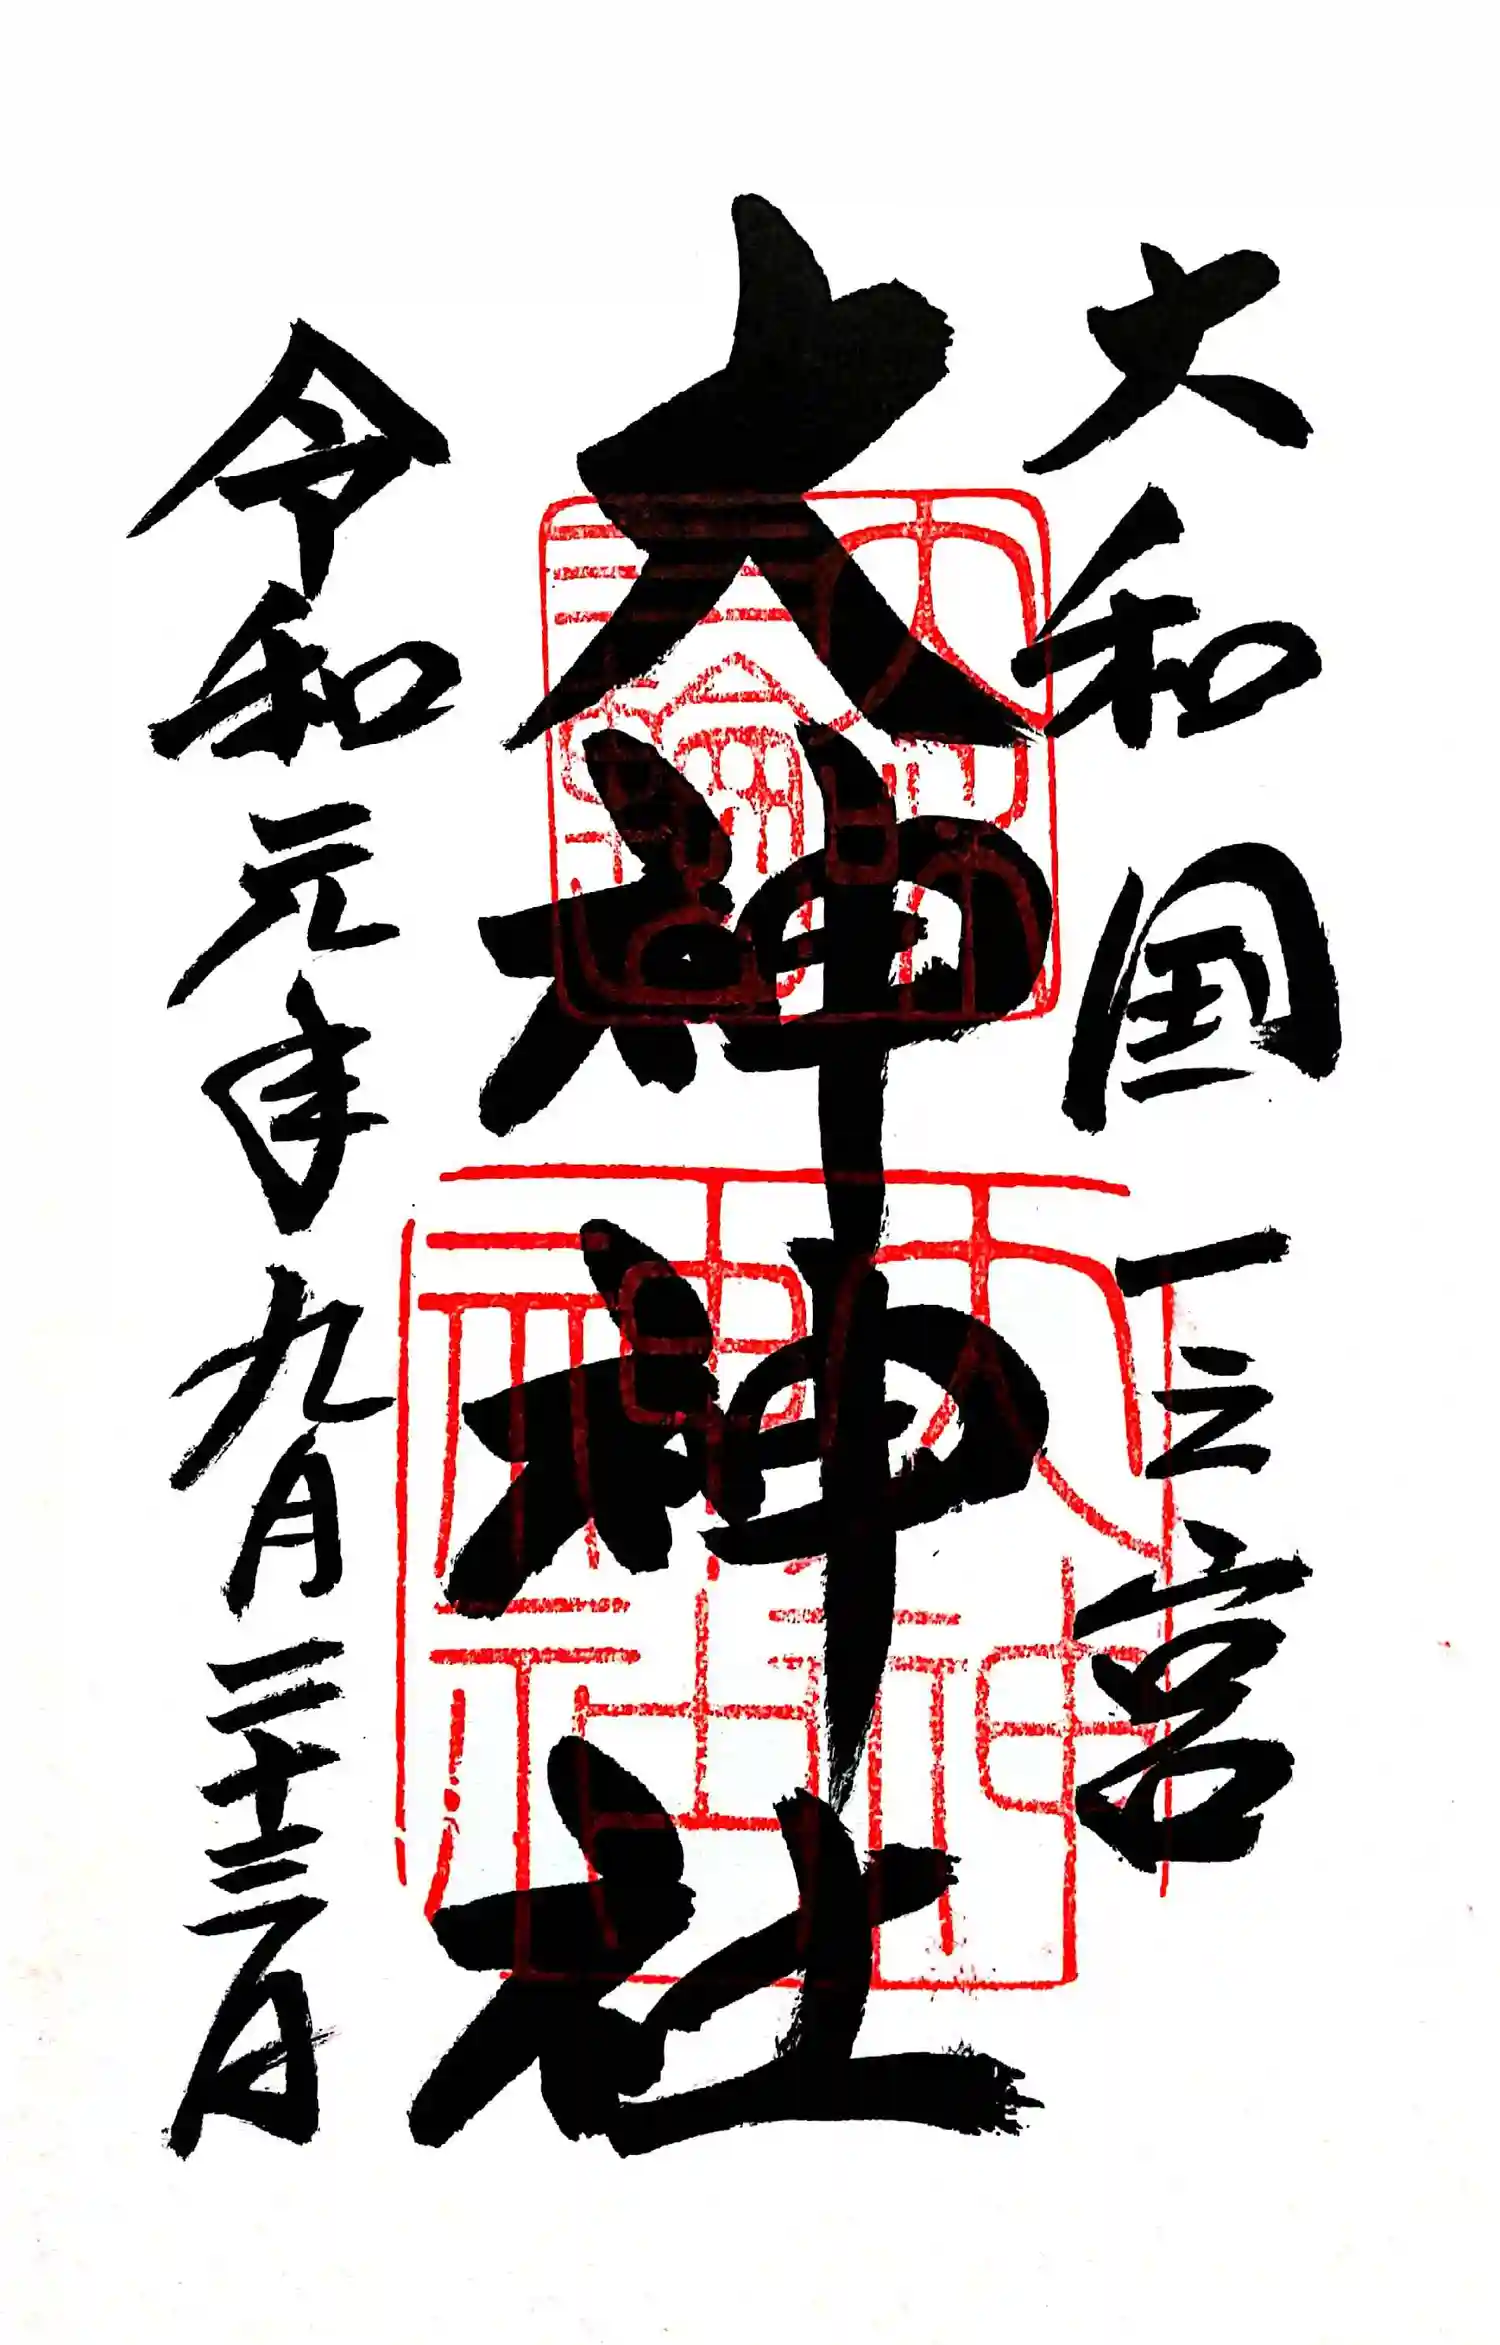 大和国一之宮
大神神社
令和元年九月二十三日
大神
神社